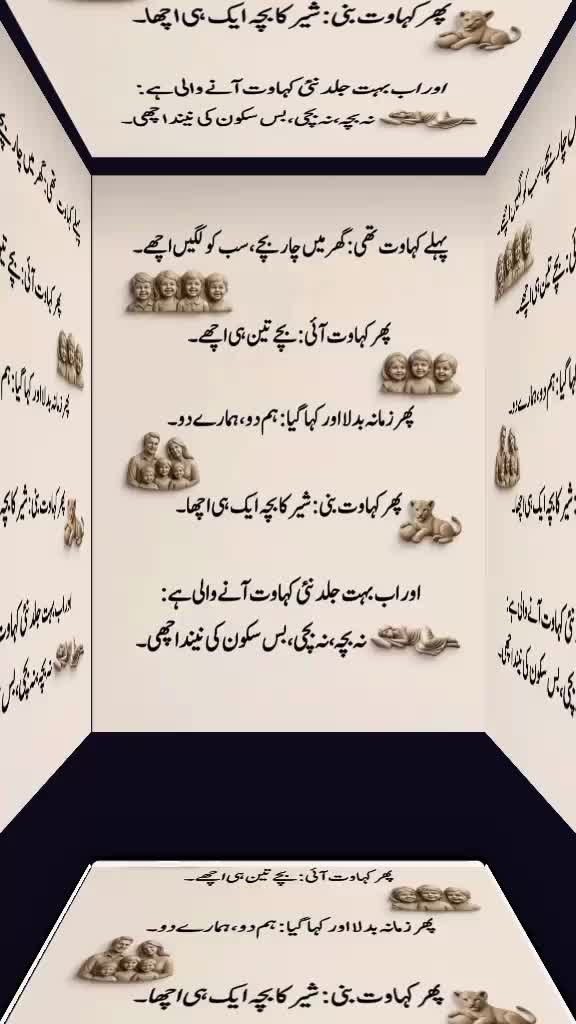 پھر کہاوت بنی: شیر کا بچہ ایک ہی اچھا۔
اور اب بہت جلد نئی کہاوت آنے والی ہے:
نہ بچہ، نہ بچی، بس سکون کی نیند اچھی۔
پہلے کہاوت تھی: گھر میں چار بچے، سب کو لگیں اچھے۔
پھر کہاوت آئی: بچے تین ہی اچھے۔
پھر زمانہ بدلا اور کہا گیا: ہم دو، ہمارے دو۔
پھر کہاوت بنی: شیر کا بچہ ایک ہی اچھا۔
اور اب بہت جلد نئی کہاوت آنے والی ہے:
نہ بچہ، نہ بچی، بس سکون کی نیند اچھی۔
پھر کہاوت آئی: بچے تین ہی اچھے۔
پھر زمانہ بدلا اور کہا گیا: ہم دو، ہمارے دو۔
پھر کہاوت بنی: شیر کا بچہ ایک ہی اچھا۔